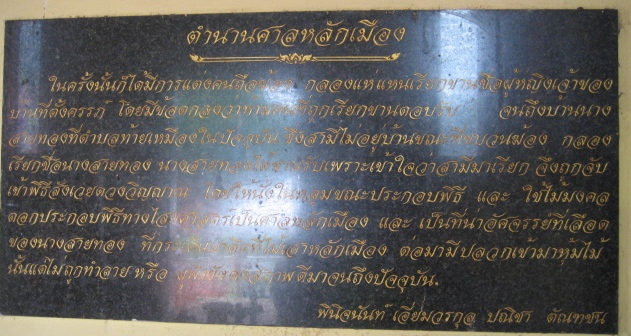 ตำนานศาลหลักเมือง
ในครั้งนั้นก็ได้มีการแต่งคนถือฆ้อง กลองแห่แหนเรียกขานชื่อผู้หญิงเจ้าของ
บ้านที่ตั้งครรภ์ โดยมีข้อตกลงว่าหาก ที่ถูกเรียกขานตอบรับ จนถึงบ้านนาง
สายทองที่ตำบลท้ายเหมืองในปัจจุบัน ซึ่งสามีไม่อยู่บ้านขณะที่ขบวนฆ้อง กลอง
เรียกชื่อนางสายทอง นางสายทอง รับเพราะเข้าใจว่าสามีมาเรียก จึงถูกจับ
เข้าพิธีสังเวยดวงวิญญาณ ให้นั่งในหลุมขณะประกอบพิธี และ ใช้ไม้มงคล
ตอกประกอบพิธีทางไสยศาสตร์เป็นศาลหลักเมือง และ เป็นที่น่าอัศจรรย์ที่เลือด
ของนางสายทอง เสาหลักเมือง ต่อมามีปลวกเข้ามาห้มไม้
นั้นแต่ไม่ถูกทำลาย หรือ สภาพดีมาจนถึงปัจจุบัน.
พินิจนันท์ เอี่ยมวรกุล ปณิชา ตัณฑชน